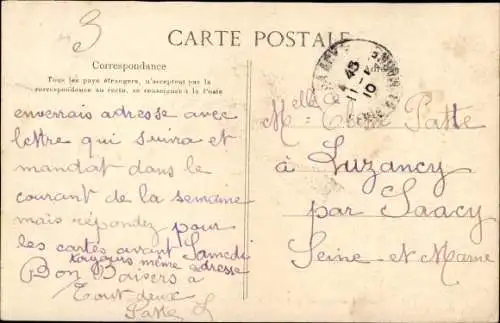 3
CARTE POSTALE
Correspondance
Tous les pays étrangers, n'acceptent pas la
correspondance au recto, se renseigner à la Poste
enverrais adresse avec
lettre qui suivra et
mandat dans le
courant de la semaine
mais répondez pour
les cartes avant Samedi
toujours même adresse
Bon Baisers à
Tout deux
Patte
45
11 - 4
10
Melle Patte
à Luzancy
par Saacy
Seine et Marne